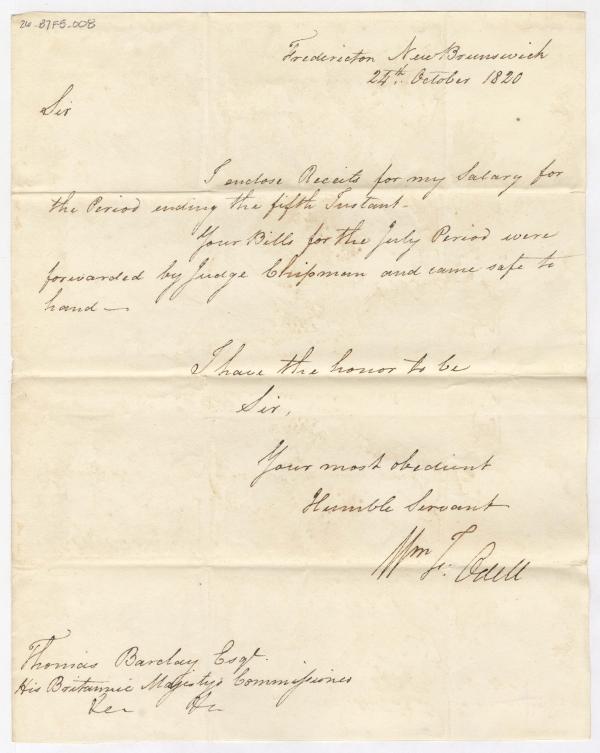 26-B7F5-008
Fredericton New Brunswick
24th. October 1820
Sir
I enclose Receits for my Salary for
the Period ending the fifth Instant.
Your Bills for the July Period were
forwarded by Judge Chipman and came safe to
hand —
I have the honor to be
Sir,
Your most obedient
Humble Servant
Wm F. Odell
Thomas Barclay Esqr.
His Britannic Majesty's Commissioner